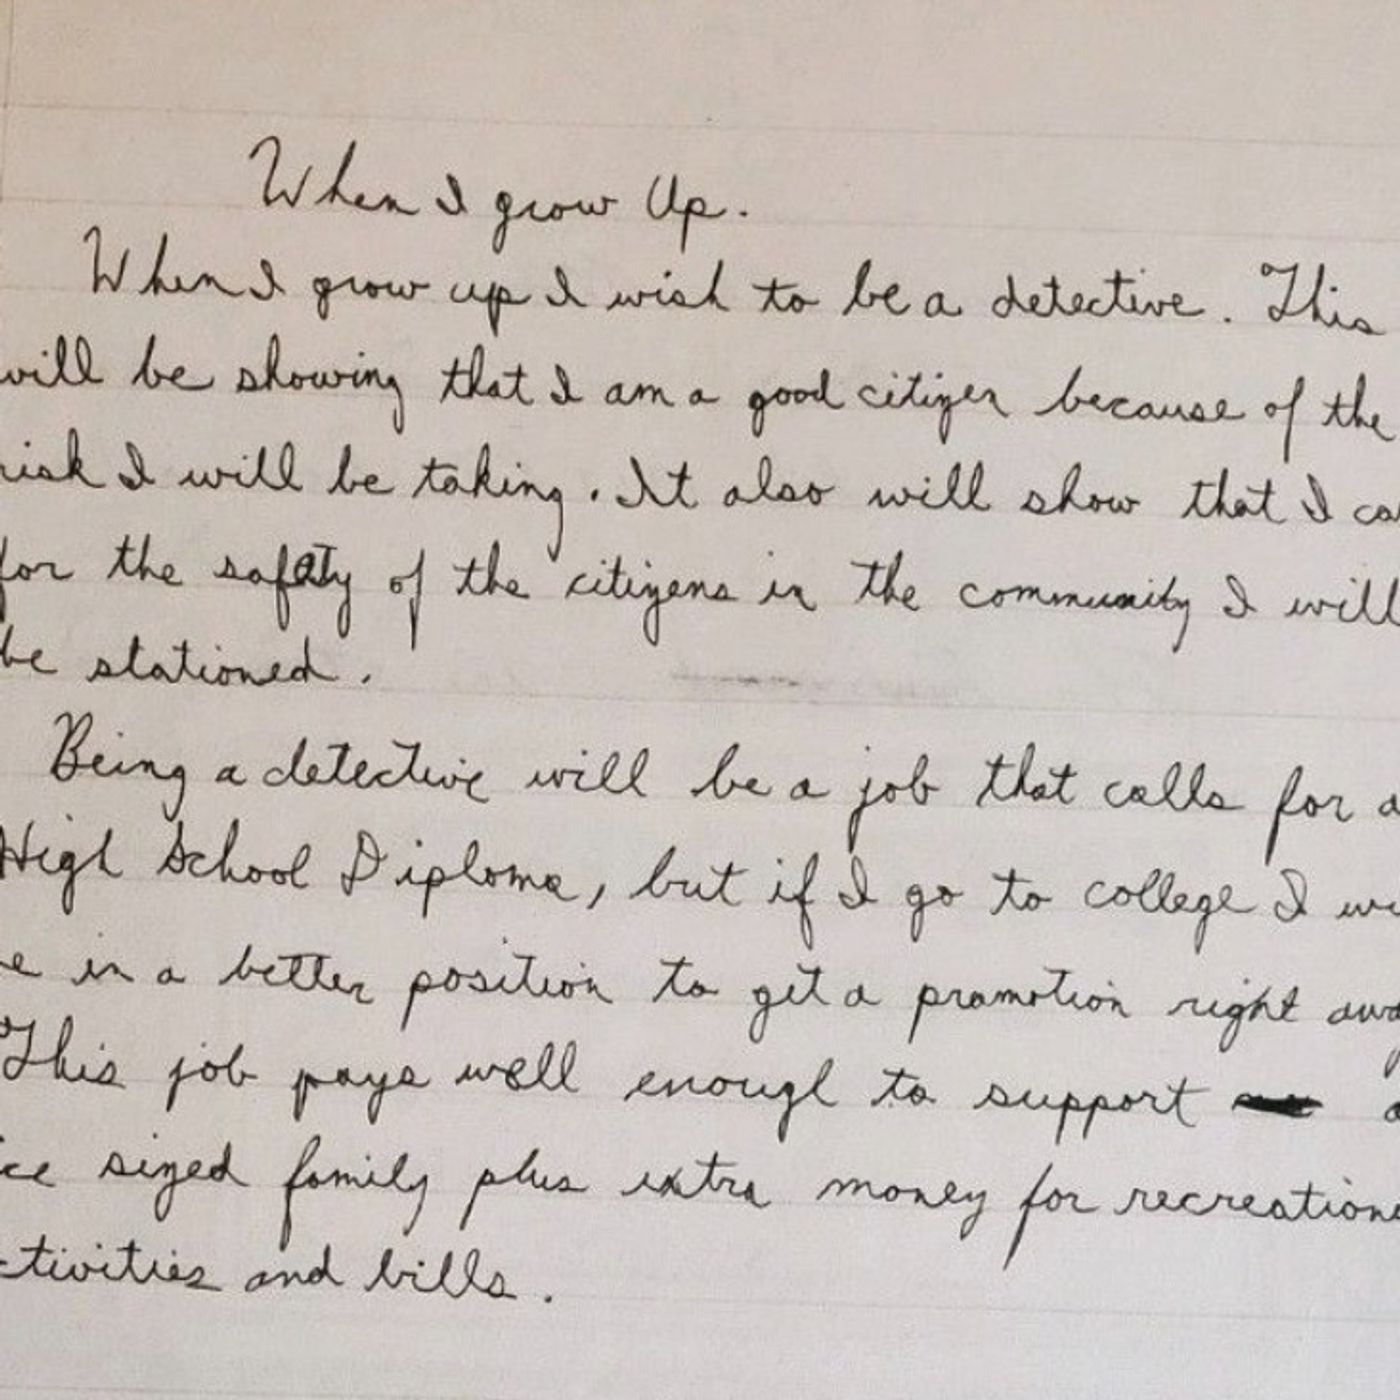 When I grow Up.
When I grow up I wish to be a detective. This
will be showing that I am a good citizen because of the
risk I will be taking. It also will show that I ca
for the safety of the citizens in the community I will
be stationed.
Being a detective will be a job that calls for a
High School Diploma, but if I go to college I wi
e in a better position to get a promotion right awa
This job pays well enough to support a
ice sized family plus extra money for recreationa
ctivities and bills.